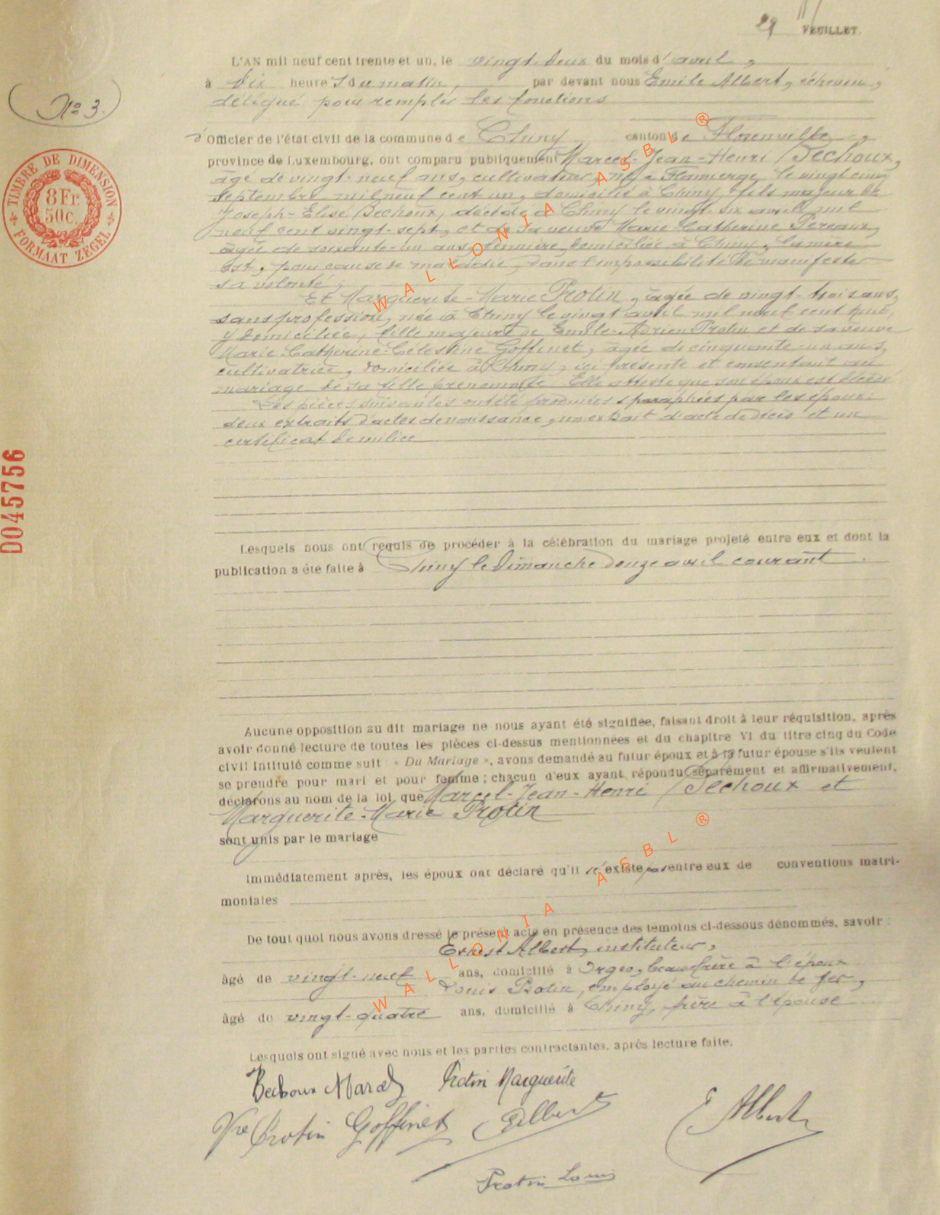 29
FEUILLET.
L'AN mil neuf cent trente et un, le vingt-deux du mois d'avril,
à dix heures du matin, par devant nous Emile Albert, échevin,
délégué pour remplir les fonctions
N° 3.
d'Officier de l'état civil de la commune de Chiny, canton de Florenville,
province de Luxembourg, ont comparu publiquement Marcel-Jean-Henri Bechoux,
âgé de vingt-neuf ans, cultivateur, né à le vingt cinq
septembre mil neuf cent un, domicilié à Chiny, fils majeur de
Joseph-Elisé Bechoux, décédé à Chiny le vingt six avril mil
neuf cent vingt-sept, et de sa veuve Marie Catherine
âgée de soixante-un ans, domiciliée à Chiny, la mère
est, pour cause de maladie, dans l'impossibilité de manifester
sa volonté;
Et Marguerite-Marie Protin, âgée de vingt-trois ans,
sans profession, née à Chiny le vingt avril mil neuf cent huit,
y domiciliée, fille majeure de Emile-Adrien Protin et de sa veuve
Marie-Catherine-Célestine Goffinet, âgée de cinquante-un ans,
cultivatrice, domiciliée à Chiny, ici présente et consentant au
mariage de sa fille prénommée. Elle atteste que son époux est décédé
Les pièces suivantes ont été produites paraphées par les époux:
deux extraits d'actes de naissance, un extrait d'acte de décès et un
certificat de milice
TIMBRE DE DIMENSION
8 Fr.
50c.
FORMAAT ZEGEL
D045756
Lesquels nous ont requis de procéder à la célébration du mariage projeté entre eux et dont la
publication a été faite à Chiny le dimanche douze avril courant.
Aucune opposition au dit mariage ne nous ayant été signifiée, faisant droit à leur réquisition, après
avoir donné lecture de toutes les pièces ci-dessus mentionnées et du chapitre VI du titre cinq du Code
civil intitulé comme suit : « Du Mariage », avons demandé au futur époux et à la futur épouse s'ils veulent
se prendre pour mari et pour femme ; chacun d'eux ayant répondu séparément et affirmativement,
déclarons au nom de la loi, que Marcel-Jean-Henri Bechoux et
Marguerite-Marie Protin
sont unis par le mariage
Immédiatement après, les époux ont déclaré qu'il n'existe pas entre eux de conventions matri-
moniales
De tout quoi nous avons dressé le présent acte en présence des témoins ci-dessous dénommés, savoir :
Ernest Albert, instituteur,
âgé de vingt-neuf ans, domicilié à Orgeo, beau-frère à l'époux
Louis Protin, employé au chemin de fer,
âgé de vingt-quatre ans, domicilié à Chiny, frère à l'épouse
Lesquels ont signé avec nous et les parties contractantes, après lecture faite.
Bechoux Marcel Protin Marguerite
Vve Protin Goffinet EAlbert E Albert
Protin Louis
WALLONIA ASBL ®
WALLONIA ASBL ®